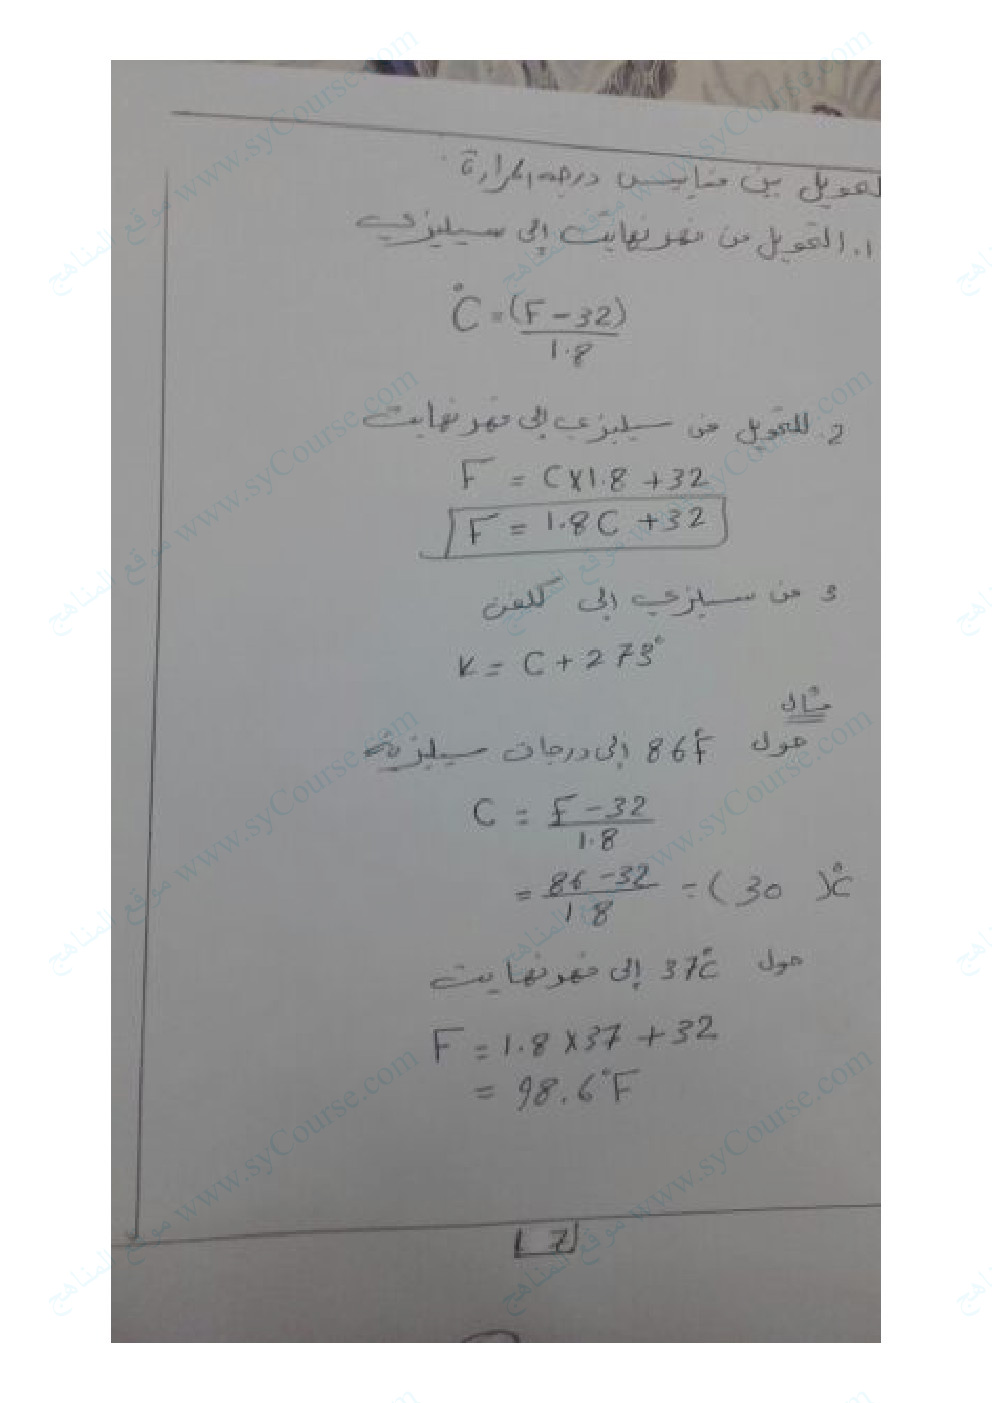 التحويل بين مقاييس درجة الحرارة
1. التحويل من فهرنهايت إلى سيليزي
C° = (F - 32)
1.8
2. للتحويل من سيليزي إلى فهرنهايت
F = C x 1.8 + 32
F = 1.8 C + 32
3 من سيليزي إلى كلفن
K = C + 273°
مثال
حول 86°F إلى درجات سيليزية
C = F - 32
1.8
= 86 - 32 = ( 30 )°C
1.8
حول 37°C إلى فهرنهايت
F = 1.8 x 37 + 32
= 98.6°F
7
موقع المناهج www.syCourse.com